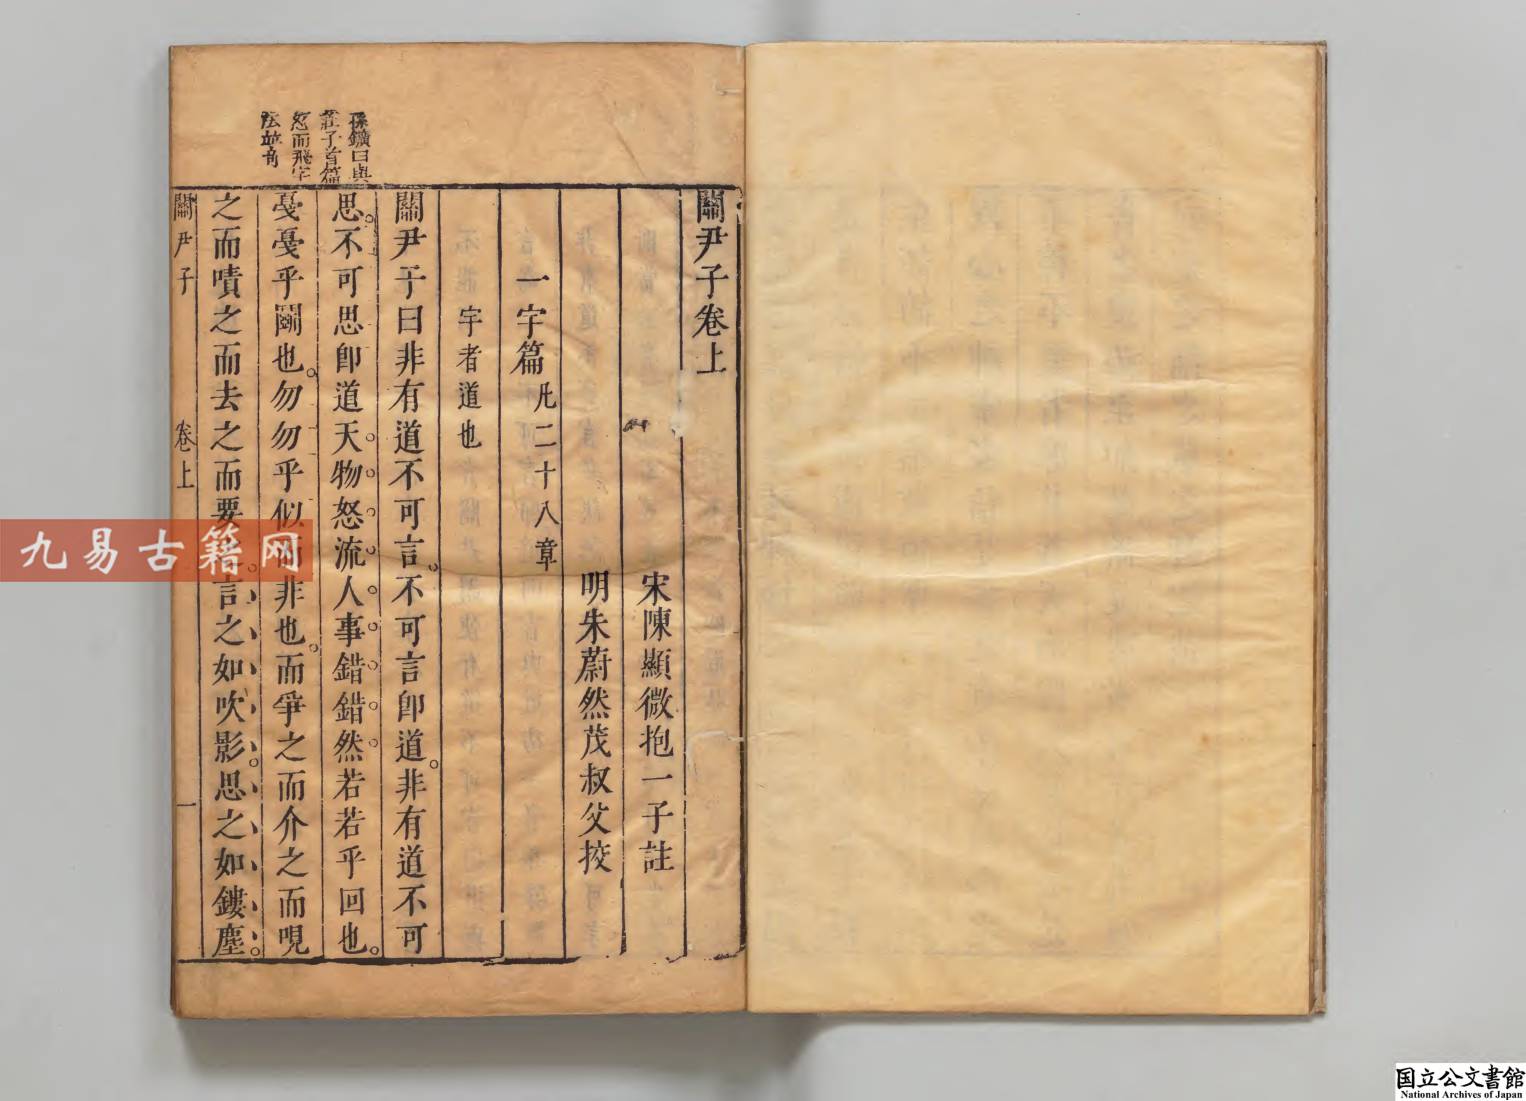 關尹子卷上
宋陳顯微抱一子註
明朱蔚然茂叔父挍
一宇篇凡二十八章
宇者道也
關尹子曰非有道不可言不可言卽道非有道不可
思不可思卽道天物怒流人事錯錯然若若乎回也
戞戞乎鬬也勿勿乎似而非也而爭之而介之而哯
之而嘖之而去之而要之言之如吹影思之如鏤塵
孫鑛曰與
莊子首篇
怒而飛字
法並奇
關尹子
卷上
一
九易古籍网
国立公文書館
National Archives of Japan